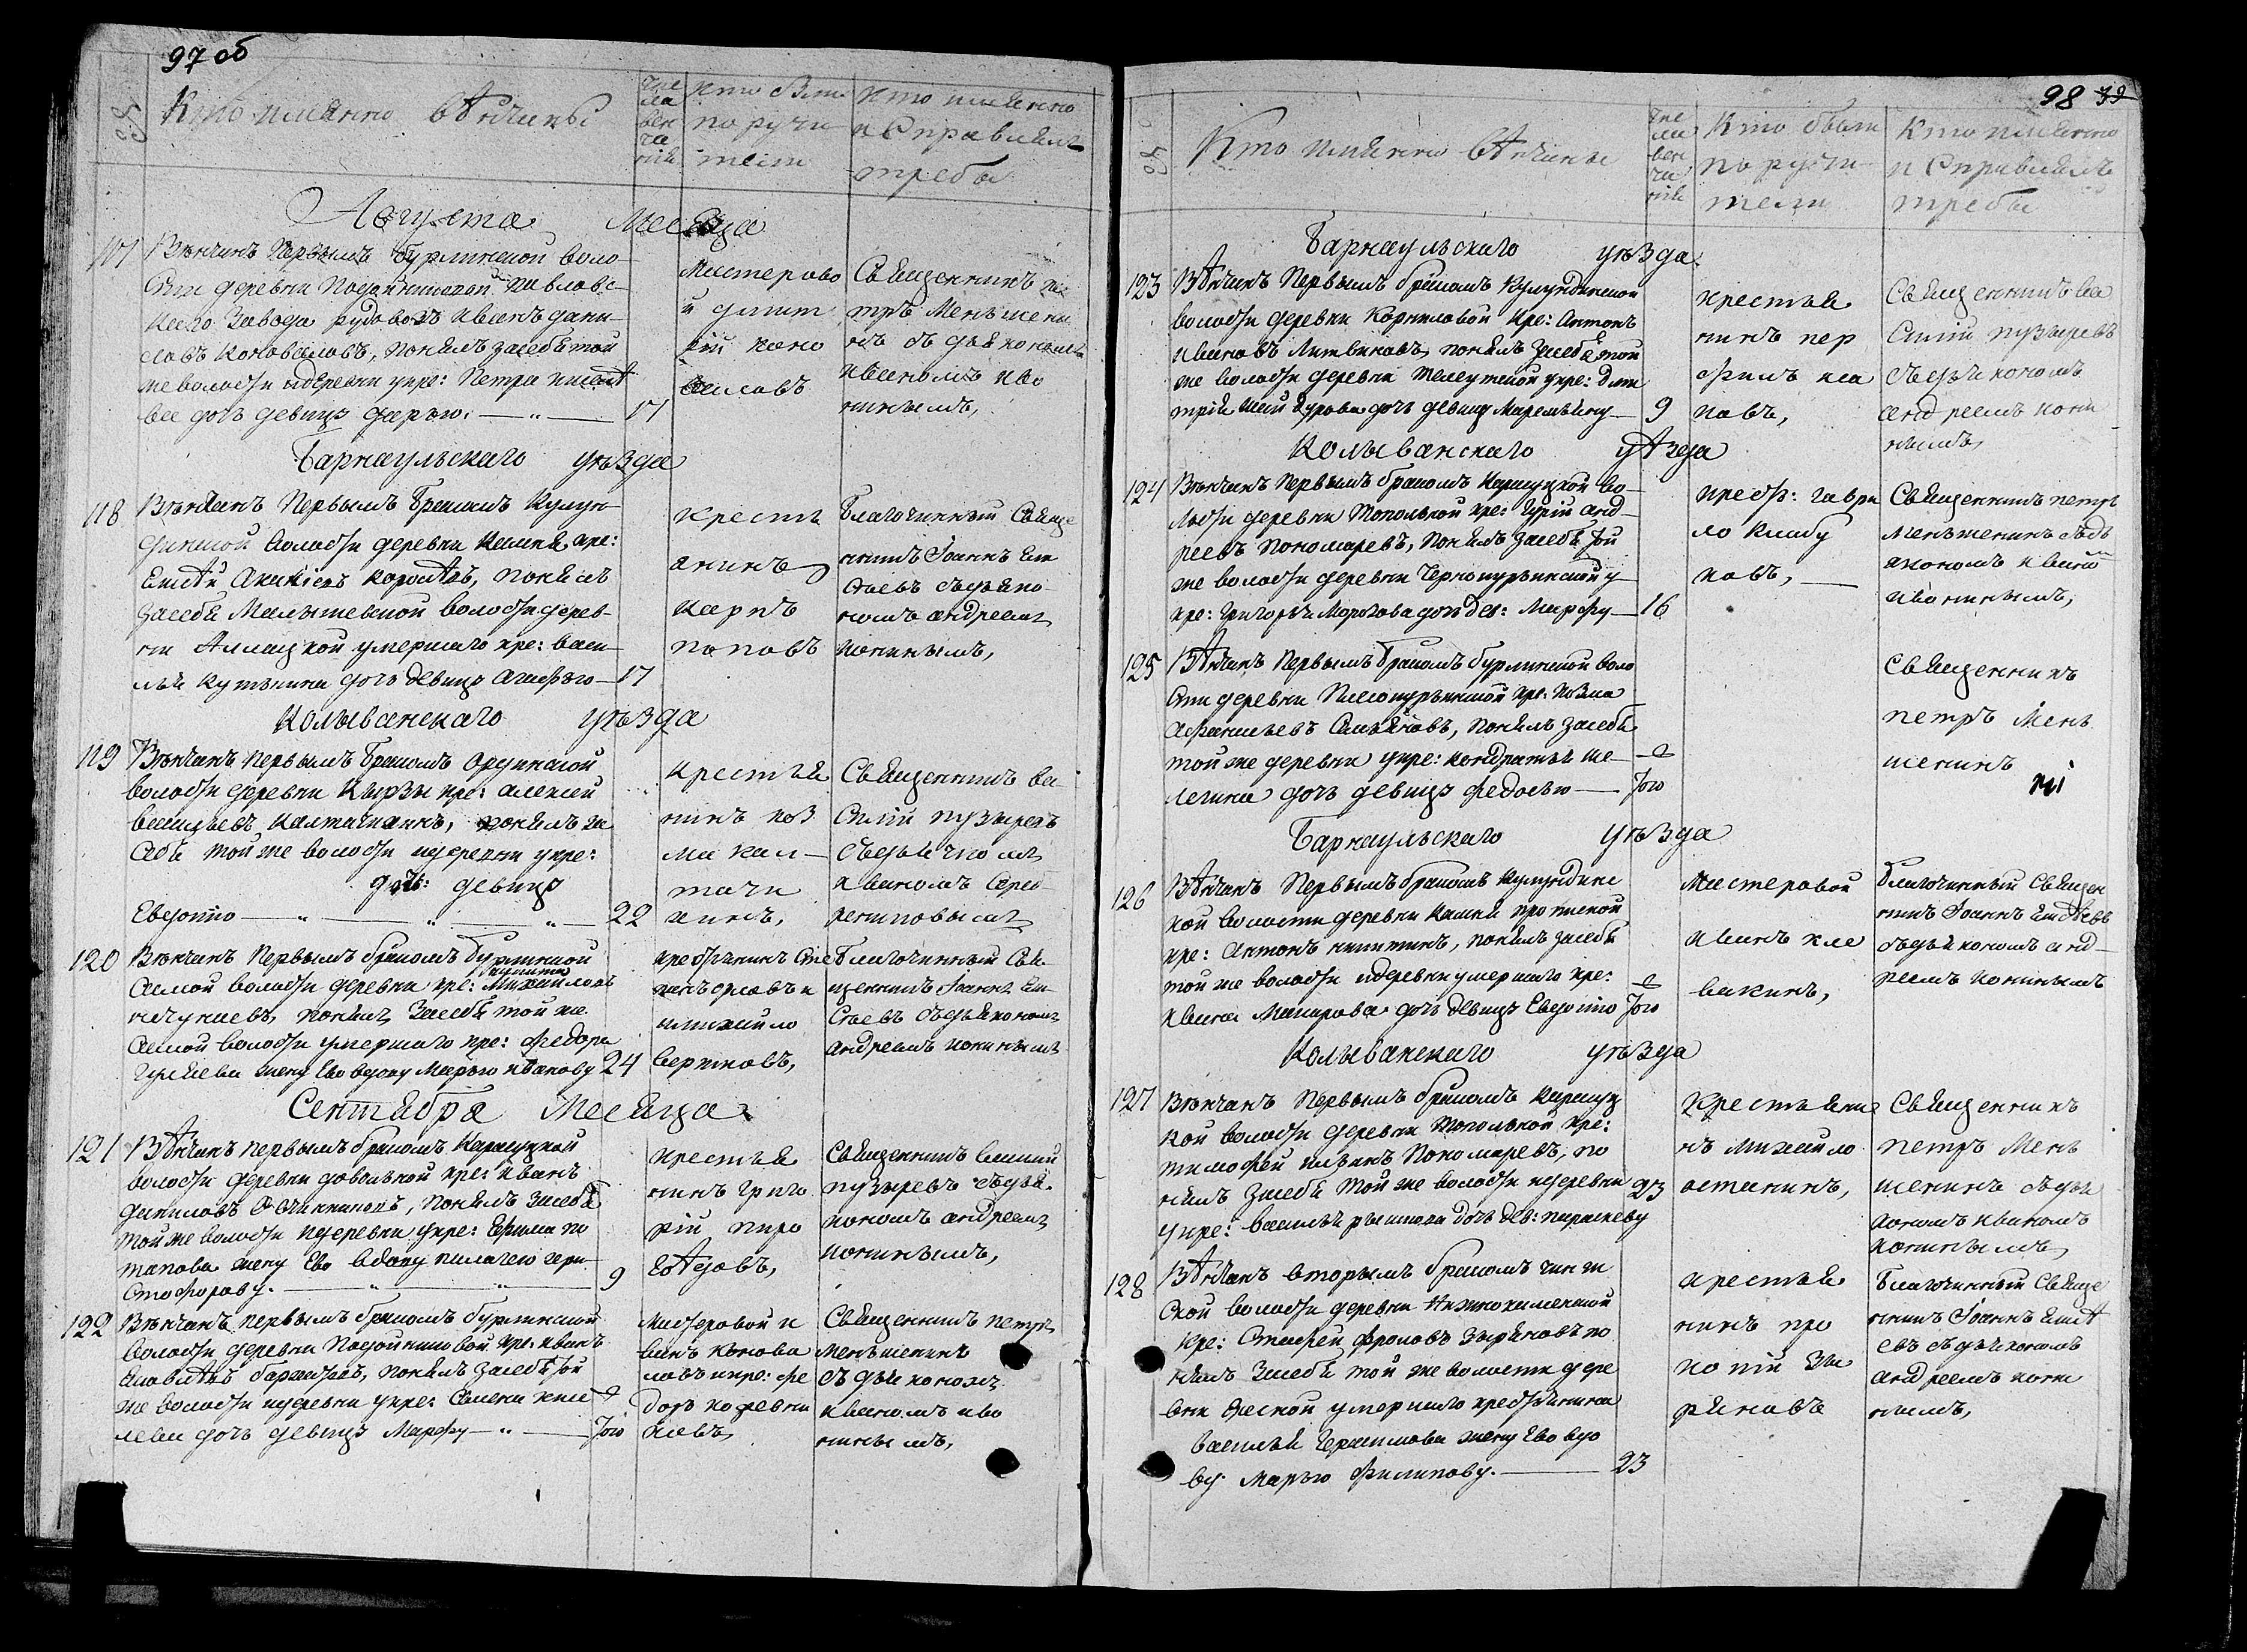 97 об
Кто имянно вѣнчаны
Чис
ла
вен
ча
нiя
кто были
поручи
тели
кто имянно
исправлялъ
требы
Августа Месяца
117
Вѣнчанъ первымъ бурлинской воло
сти деревни павловс
каго завода рудовозъ Иванъ дани
ловъ Коноваловъ, понялъ засебя той
же волости идеревни укре: Петра
ва дочь девицу дарью. 17
Мастерово
й
Коно
валовъ
Священникъ пе
тръ Меньшени
нъ съ дьякономъ
Иваномъ Ко
нинымъ,
Барнаульскаго уѣзда
118
Вѣнчанъ Первымъ Бракомъ Кулун
динской волости деревни Камня кре:
понялъ
засебя Малышевской волости дерев
ни Алтацкой умершаго кре: васи
лья Кутькина дочь девицу Агафью 17
Кресть
янинъ
Карпъ
поповъ
Благочинный Свяще
нникъ Iоаннъ Ев
сѣевъ съдьяко
номъ андреемъ
Кониннымъ,
Колыванскаго уѣзда
119
Вѣнчанъ первымъ бракомъ Ординской
волости деревни Кырзы кре: алексей
васильевъ Калтачихинъ, понялъ за
себя той же волости идеревни укре:
дочь: девицу
Евдотью 22
крестья
нинъ коз
ма кал
тачи
хинъ,
Священникъ ва
силiй пузыревъ
съдьячкомъ
Иваномъ Сереб
рениковымъ
120
Вѣнчанъ Первымъ бракомъ бурлинской
самой волости деревни кре: Михайловъ
понялъ Засебя той же
самой волости умершаго кре: Федора
жену Ево вдову Марью Иванову 24
крестьянинъ Сте
михайло
вертковъ,
Благочинный Свя
щенникъ Iоаннъ Ев
сѣевъ съдьякономъ
андреемъ Конинымъ
Сентября Месяца
121
Вѣнчанъ первымъ бракомъ Карасуцкой
волости деревни довольной кре: Иванъ
даниловъ Овчинниковъ, понялъ засебя
той же волости идеревни укре: Ефима по
тапова жену Ево вдову пилагею хри
стофорову. 9
крестья
нинъ григо
рiй пиро
гѣдовъ,
Священникъ василiй
пузыревъ съдья
кономъ андреемъ
Конинымъ,
122
Вѣнчанъ первымъ бракомъ бурлинской
волости деревни кре: Иванъ
понялъ засебя той
же волости идеревни укре: Семена кисе
лева дочь девицу Марфу того
Мастеровой и
ванъ Конова
ловъ икре: фе
доръ коревни
ковъ
Священникъ петръ
Меньшенинъ
съ дьякономъ
Иваномъ Ико
нинымъ,
98 39
Кто имянно вѣнчаны
Чис
ла
вен
ча
нiя
кто были
поручи
тели
Кто имянно
исправлялъ
требы
Барнаульскаго уѣзда
123
Вѣнчанъ первымъ бракомъ Кулундинской
волости деревни Корниловой кре: Антонъ
Ивановъ Литвиновъ, понялъ засебя той
же волости деревни Телеутской укре: дми
трiя дочь девицу Маремьяну 9
крестья
нинъ пер
филъ иса
ковъ,
Священникъ ва
силiй пузыревъ
съдьякономъ
андреемъ кони
нымъ
Колыванскаго уѣзда
124
Вѣнчанъ Первымъ бракомъ Карасуцкой во
лости деревни Топольной кре: Юрiй анд
реевъ Пономаревъ, понялъ засебя той
же волости деревни Чернокурьинской у
кре: григорья Морозова дочь дев: Марфу 16
крестья: гаври
ло Клабу
ковъ,
Священникъ петръ
Меньшенинъ съдь
якономъ Иваномъ
Иконинымъ,
125
Вѣнчанъ Первымъ Бракомъ бурлинской воло
сти деревни кре: козма
Афанасьевъ понялъ засебя
той же деревни укре: кондратья ше
легина дочь девицу федосью того
Священникъ
петръ Мень
шенинъ
Барнаульскаго уѣзда
126
Вѣнчанъ Первымъ бракомъ Кулундинс
кой волости деревни Камня
кре: Антонъ никитинъ, понялъ засебя
той же волости идеревни умершаго кре:
Ивана Макарова дочь девицу Евдотью того
Мастеровой
Иванъ кле
вакинъ,
Благочинный Священ
никъ Iоаннъ Евсѣевъ
съдьякономъ анд
реемъ Конинымъ
Колыванскаго уѣзда
127
Вѣнчанъ Первымъ бракомъ Карасуц
кой волости деревни Топольной кре:
тимофей Пономаревъ, по
нялъ Засебя той же волости идеревни 23
укре: Василья дочь дев: параскеву
Крестьяни
нъ Михайло
останинъ,
Священникъ
петръ Мень
шенинъ съдья
кономъ Иваномъ
Конинымъ
128
Вѣнчанъ вторымъ бракомъ чингис
ской волости деревни Нижнокаменской
кре: Стафей Фроловъ Зыряновъ по
нялъ Засебя той же волости дере
вни умершаго крестьянина
василья Герасимова жену Ево вдо
ву Марью Филипову. 23
крестья
нинъ про
копiй Зы
ряновъ
Благочинный Свяще
нникъ Iоаннъ Евсѣ
евъ съдьякономъ
андреемъ кони
нымъ,